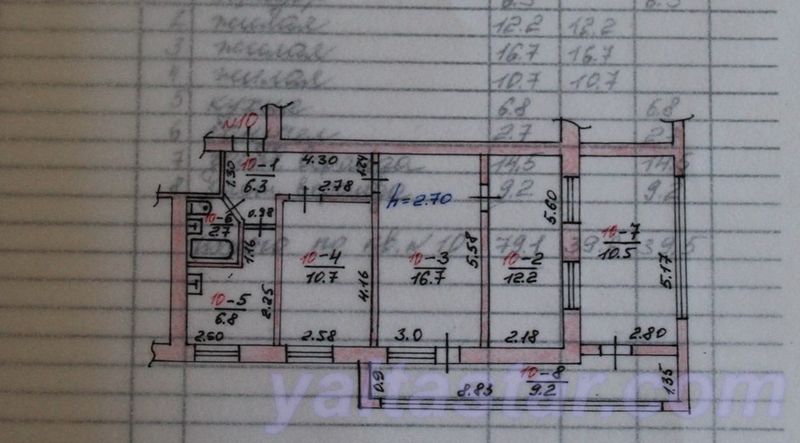 6.3 6.3
2 жилая 12.2 12.2
3 жилая 16.7 16.7
4 жилая 10.7 10.7
5 кухня 6.8 6.8
6 2.7
7 14.5 14.5
8 9.2 9.2
по кв. №10 79.1 39
№10
10-1
6.3
1.30
4.30
1.24
2.78
h=2.70
10-6
2.7
0.98
1.16
10-4
10.7
4.16
2.58
10-5
6.8
2.25
2.60
10-3
16.7
5.58
3.0
10-2
12.2
5.60
2.18
10-7
10.5
5.17
2.80
10-8
9.2
0.9
8.83
1.35
yaltastar.com